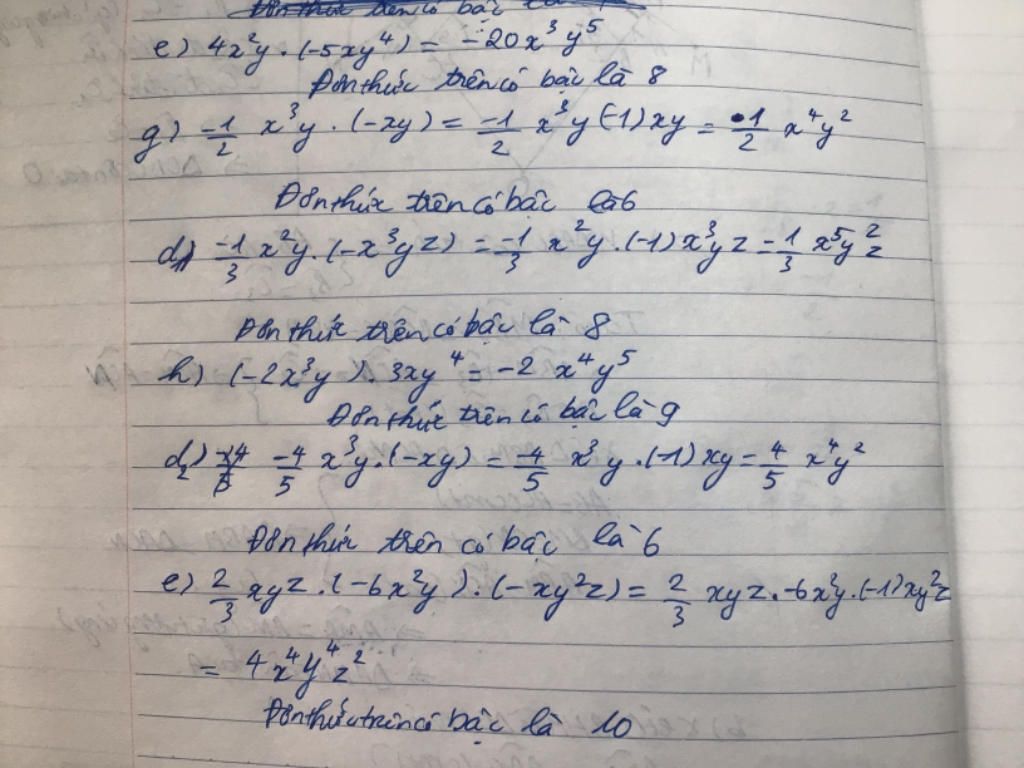 Đơn thức trên có bậc
e) 4x²y . (-5xy⁴) = -20x³y⁵
Đơn thức trên có bậc là 8
g) -1/2 x³y . (-xy) = -1/2 x³y (-1) xy = 1/2 x⁴y²
Đơn thức trên có bậc là 6
d₁) -1/3 x²y . (-x³yz) = -1/3 x²y . (-1) x³yz = 1/3 x⁵y²z
Đơn thức trên có bậc là 8
h) (-2x³y) . 3xy⁴ = -2 x⁴y⁵
Đơn thức trên có bậc là 9
d₂) -4/5 x³y . (-xy) = -4/5 x³y . (-1) xy = 4/5 x⁴y²
Đơn thức trên có bậc là 6
e) 2/3 xyz . (-6x²y) . (-xy²z) = 2/3 xyz . -6x²y . (-1) xy²z
= 4x⁴y⁴z²
Đơn thức trên có bậc là 10